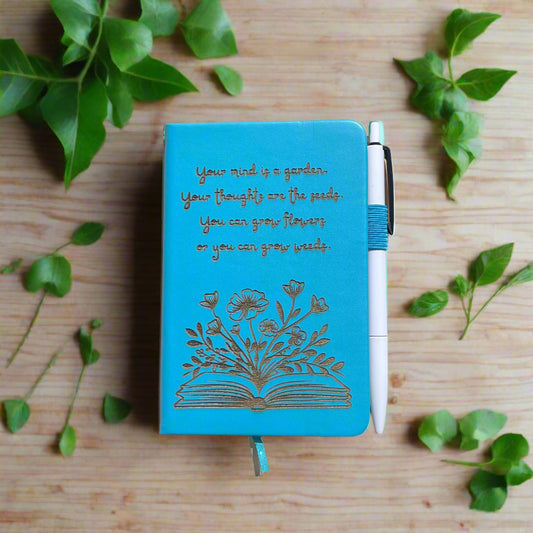 Your mind is a garden.
Your thoughts are the seeds.
You can grow flowers
or you can grow weeds.